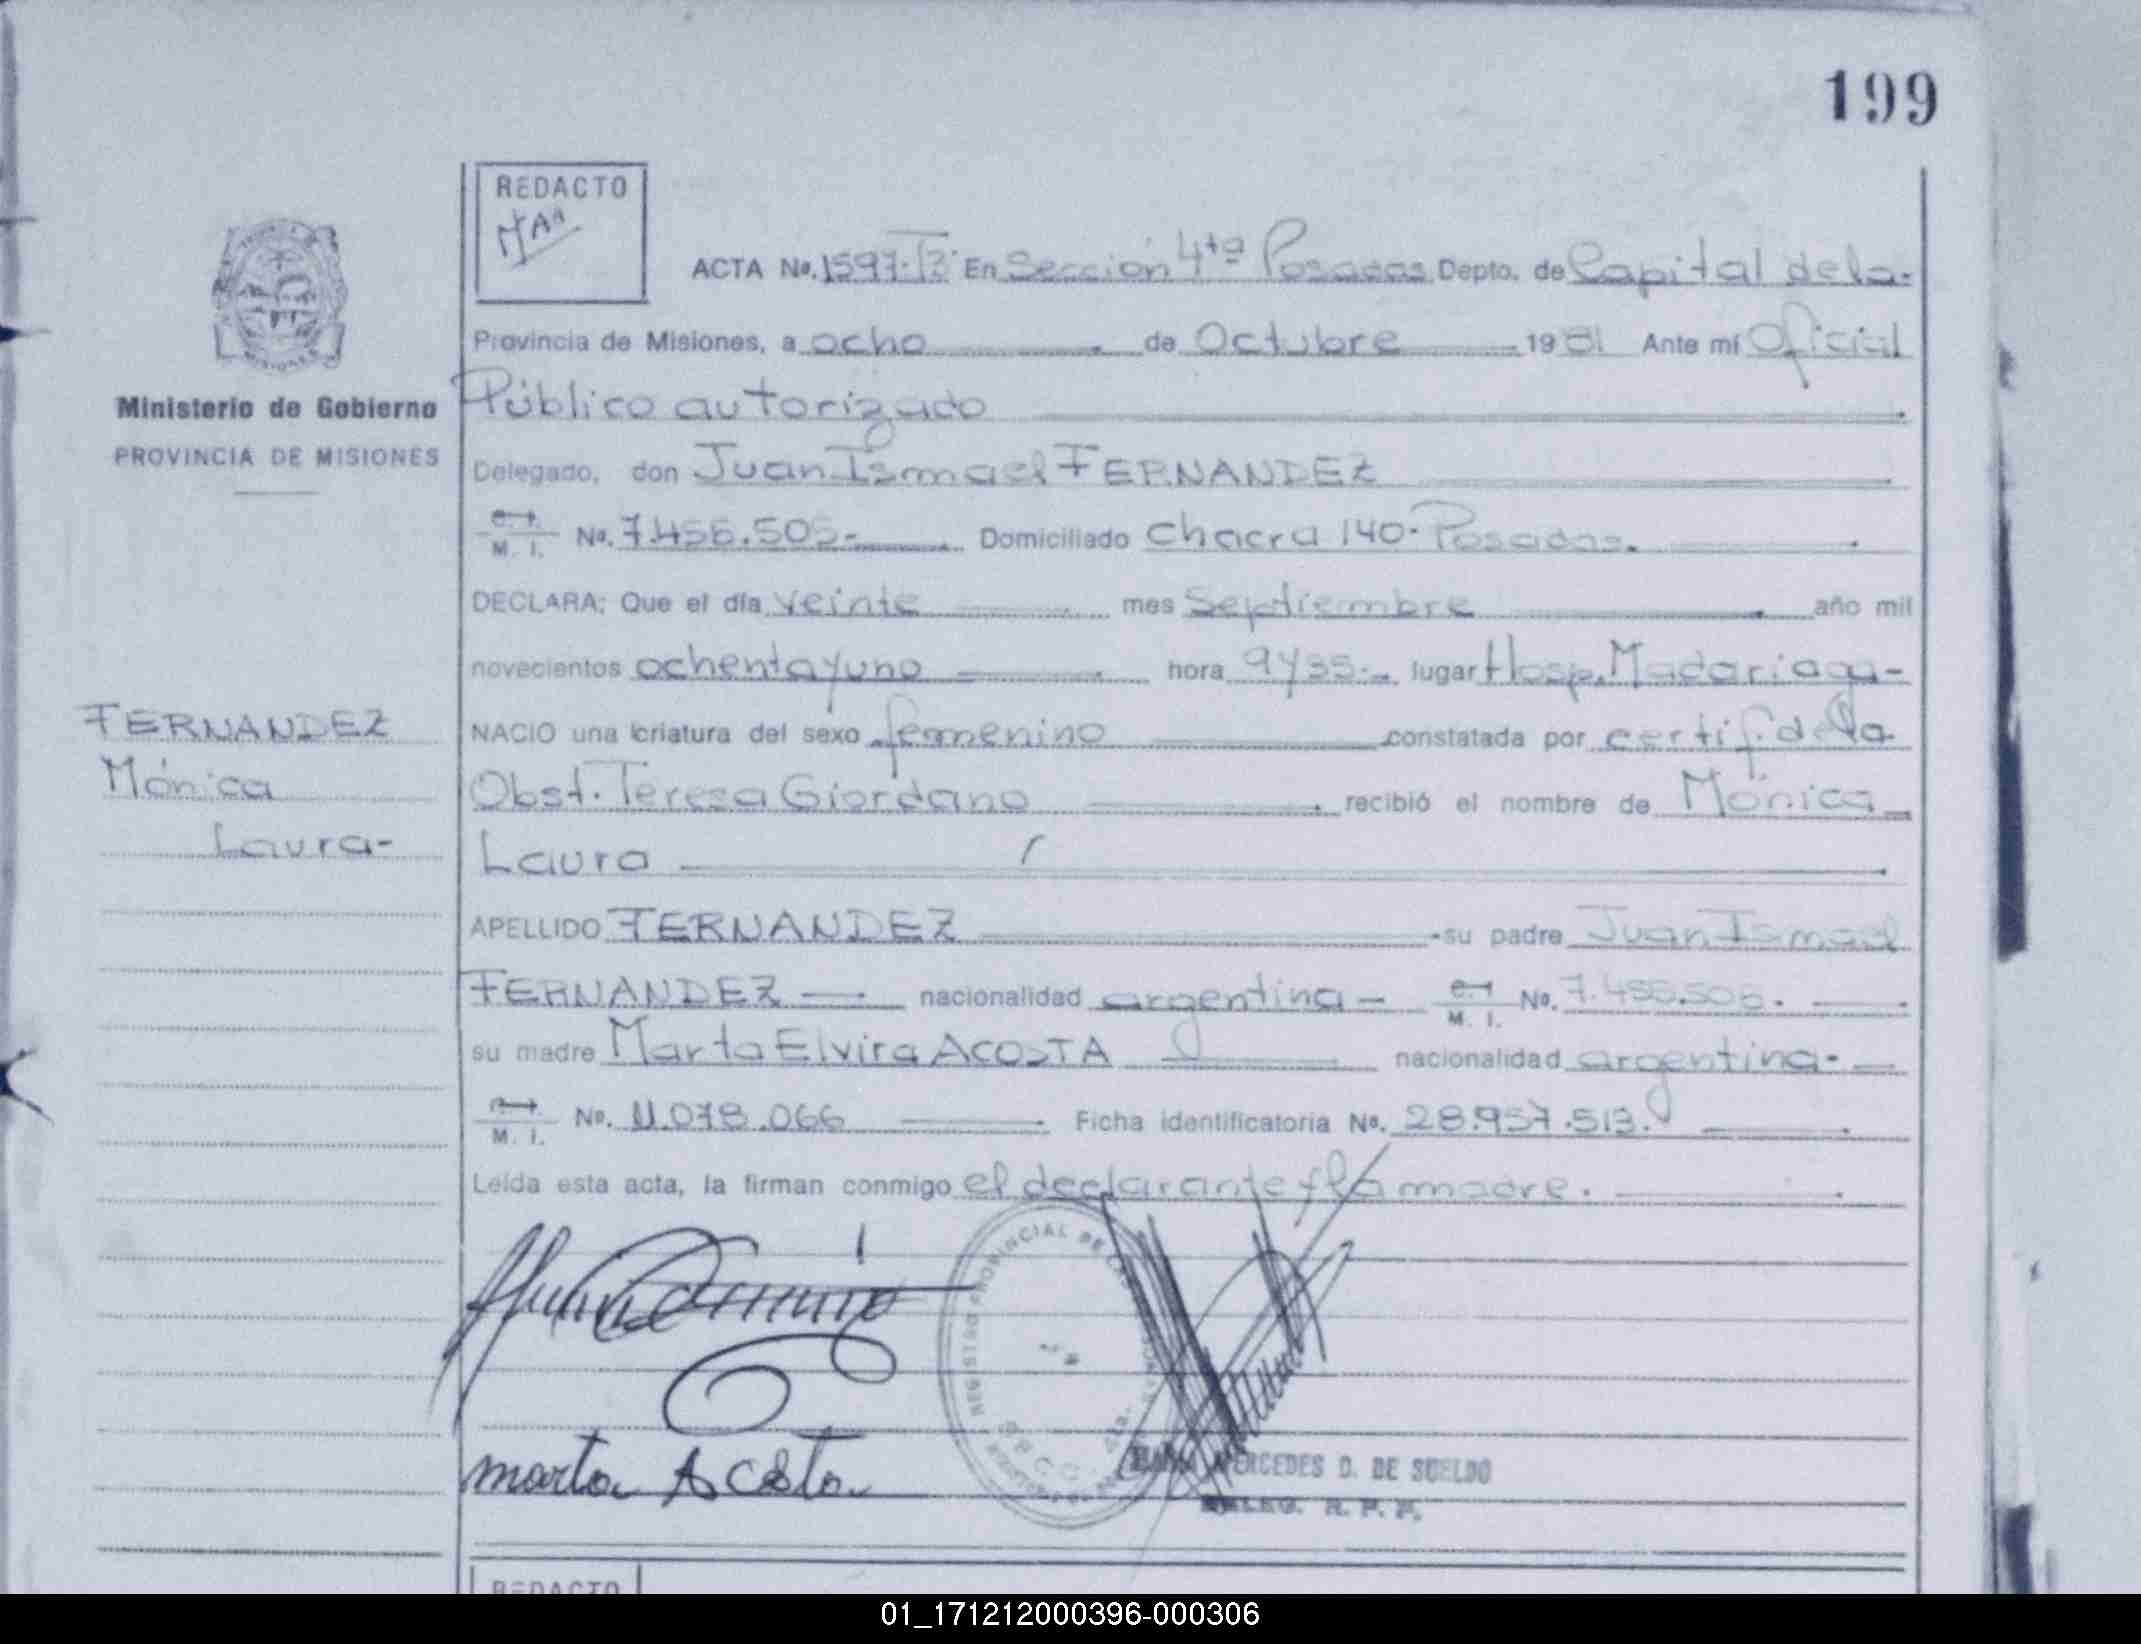 199
REDACTO
ACTA No. 1597-T3- En Sección 4ta Posadas Depto. de Capital de la-
Provincia de Misiones, a ocho de Octubre 1981 Ante mí Oficial
Ministerio de Gobierno
Público autorizado
PROVINCIA DE MISIONES
Delegado, don Juan Ismael FERNANDEZ
M. I. No. 7.455.505- Domiciliado Chacra 140- Posadas.
DECLARA: Que el día veinte mes Septiembre año mil
novecientos ochenta y uno hora 9 y 35- lugar Hosp. Madariaga-
FERNANDEZ
NACIO una criatura del sexo femenino constatada por certif. de la
Mónica
Obst. Teresa Giordano recibió el nombre de Mónica
Laura-
Laura
APELLIDO FERNANDEZ su padre Juan Ismael
FERNANDEZ nacionalidad argentina- M. I. No.
su madre Marta Elvira ACOSTA nacionalidad argentina-
M. I. No. 11.078.066 Ficha identificatoria No. 28.957.513.
Leída esta acta, la firman conmigo el declarante y la madre.
REGISTRO PROVINCIAL DE LAS
marta Acosta
MERCEDES D. DE SUELDO
DELEG. R. P. P.
REDACTO
01_171212000396-000306